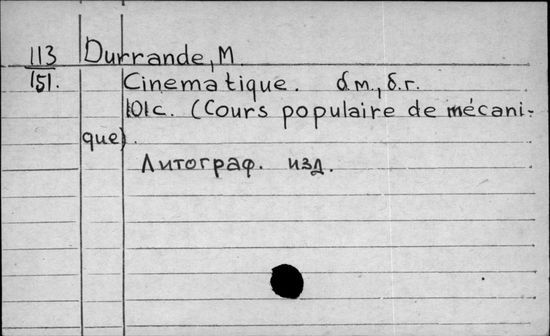 113 Durrande, M.
151. Cinematique. б.м., б.г.
101с. (Cours populaire de mécani-
que).
Литограф. изд.